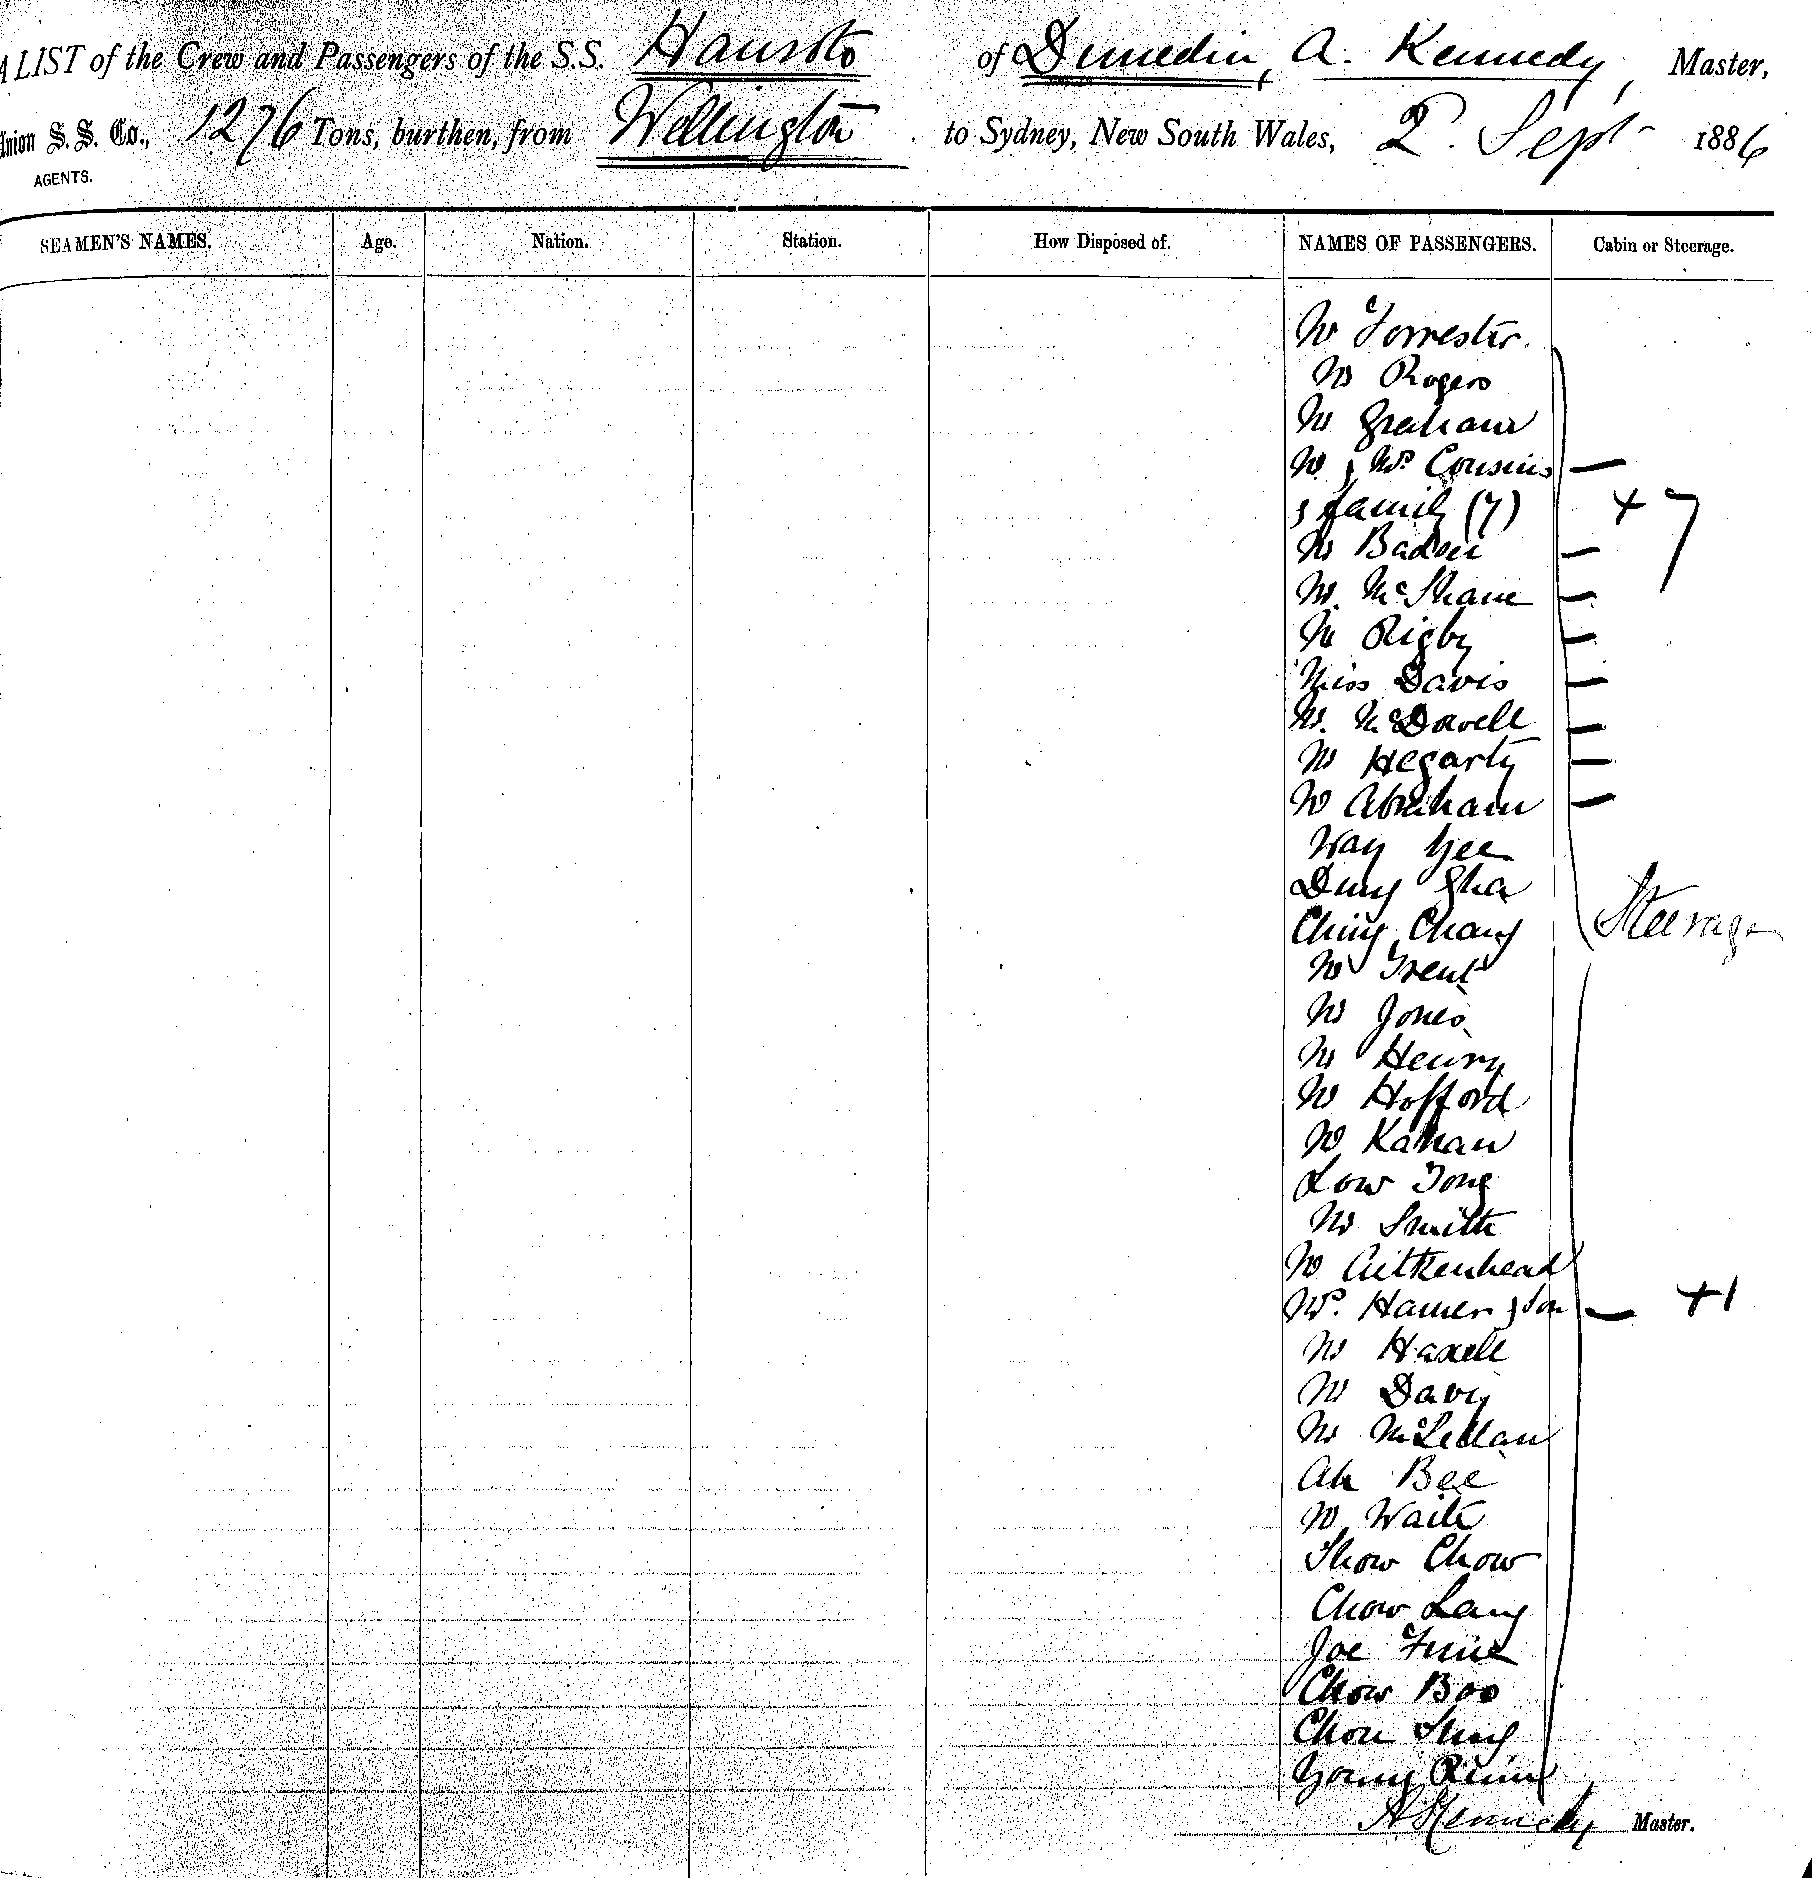 A LIST of the Crew and Passengers of the S.S. Hauroto of Dunedin, A. Kennedy, Master,
Union S. S. Co., 1276 Tons, burthen, from Wellington to Sydney, New South Wales, 2 Sept 1886
AGENTS.
SEAMEN'S NAMES. Age. Nation. Station. How Disposed of. NAMES OF PASSENGERS. Cabin or Steerage.
Mr Forrester
Mr Rogers
Mr Graham
Mr & Mrs Cousins —
& family (7) + 7
Mr —
Mr. McShane —
Mr Rigby —
Miss Davis —
Mr. McDowell —
Mr Hegarty —
Mr Abraham —
Way Yee
Dung Gha
Ching Chang Steerage
Mr Trent
Mr Jones
Mr Henry
Mr Hofford
Mr
Low Tong
Mr Smith
Mr Aitkenhead
Mrs. Hamer & Son — +1
Mr Haxell
Mr Davy
Mr McLellan
Ah Bee
Mr Waite
Show Chow
Chow Lang
Joe
Chow Boo
Chou Sung
Young
A Kennedy Master.